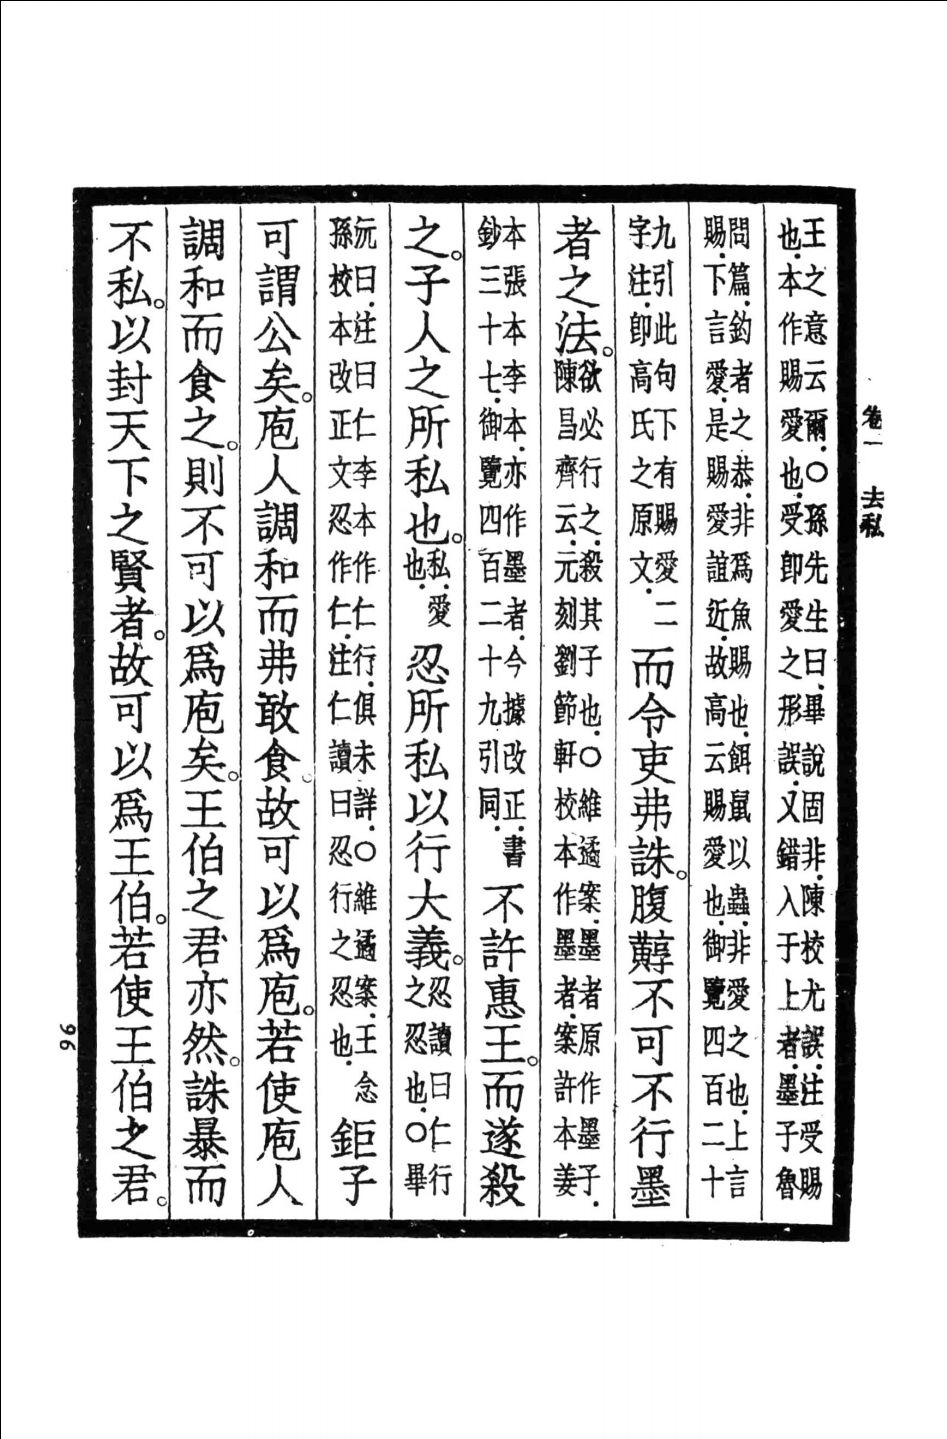 卷一 去私
王之意云爾.○孫先生曰.畢說固非.陳校尤誤.注受賜
也.本作賜愛也.受卽愛之形誤.又錯入于上者.墨子魯
問篇.釣者之恭.非爲魚賜也.餌鼠以蟲.非愛之也.上言
賜.下言愛.是賜愛誼近.故高云賜愛也.御覽四百二十
九引此句下有賜愛二
字注.卽高氏之原文.
而令吏弗誅。腹䵍不可不行墨
者之法。
欲必行之.殺其子也.○維遹案.墨者原作墨子.
陳昌齊云.元刻劉節軒校本作墨者.案許本姜
本張本李本.亦作墨者.今據改正.書
鈔三十七.御覽四百二十九引同.
不許惠王。而遂殺
之。子人之所私也。
私.愛
也.
忍所私以行大義。
忍讀曰仁行
之忍也.○畢
沅曰.注曰仁李本作仁行.俱未詳.○維遹案.王念
孫校本改正文忍作仁.注仁讀曰忍行之忍也.
鉅子
可謂公矣。庖人調和而弗敢食。故可以爲庖。若使庖人
調和而食之。則不可以爲庖矣。王伯之君亦然。誅暴而
不私。以封天下之賢者。故可以爲王伯。若使王伯之君。
96